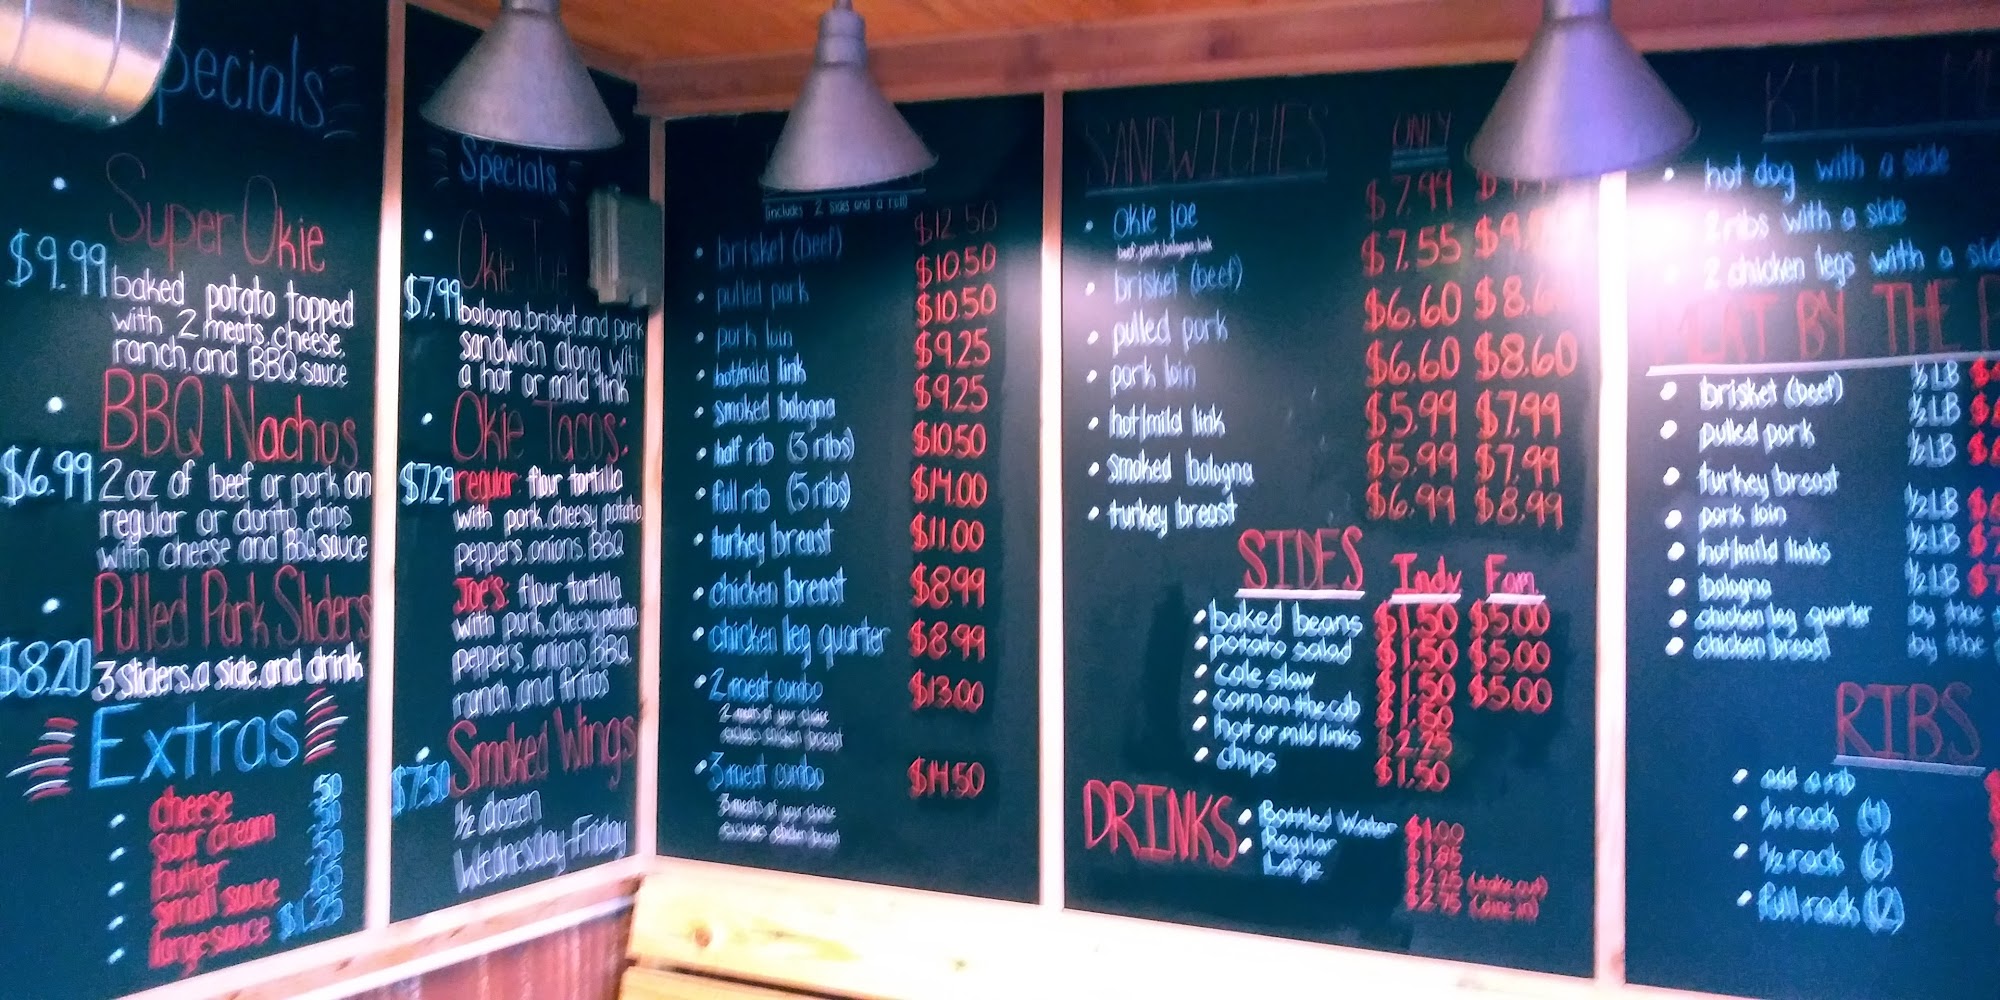 Specials
Super Okie
$9.99 baked potato topped
with 2 meats, cheese,
ranch, and BBQ sauce
BBQ Nachos
$6.99 2 oz of beef or pork on
regular or dorito chips
with cheese and BBQ sauce
Pulled Pork Sliders
$8.20 3 sliders, a side, and drink
Extras
cheese .50
sour cream
butter
small sauce
large sauce $1.25
Specials
Okie
$7.99 bologna, brisket, and pork
sandwich along with
a hot or mild link
Okie Tacos:
$7.29 regular: flour tortilla
with pork, cheesy potato
peppers, onions, BBQ
Joe's: flour tortilla
with pork, cheesy potato,
peppers, onions, BBQ,
ranch, and fritos
Smoked Wings
$7.50 1/2 dozen
Wednesday-Friday
(includes 2 sides and a roll)
brisket (beef) $12.50
pulled pork $10.50
pork loin $10.50
hot/mild link $9.25
smoked bologna $9.25
half rib (3 ribs) $10.50
full rib (5 ribs) $14.00
turkey breast $11.00
chicken breast $8.99
chicken leg quarter $8.99
2 meat combo $13.00
2 meats of your choice
excludes chicken breast
3 meat combo $14.50
3 meats of your choice
excludes chicken breast
SANDWICHES ONLY
okie joe $7.99
beef, pork, bologna, link
brisket (beef) $7.55
pulled pork $6.60
pork loin $6.60 $8.60
hot/mild link $5.99 $7.99
smoked bologna $5.99 $7.99
turkey breast $6.99 $8.99
SIDES Indv Fam
baked beans $1.50 $5.00
potato salad $1.50 $5.00
cole slaw $1.50 $5.00
corn on the cob
hot or mild links $2.25
chips $1.50
DRINKS
Bottled Water $1.00
Regular $1.85
Large $2.25 (take out)
$2.75 (dine in)
hot dog with a side
2 ribs with a side
2 chicken legs with a side
BY THE
brisket (beef) 1/2 LB
pulled pork 1/2 LB
turkey breast 1/2 LB
pork loin 1/2 LB
hot/mild links 1/2 LB
bologna 1/2 LB
chicken leg quarter by the
chicken breast by the
RIBS
add a rib
rack (4)
1/2 rack (6)
full rack (12)